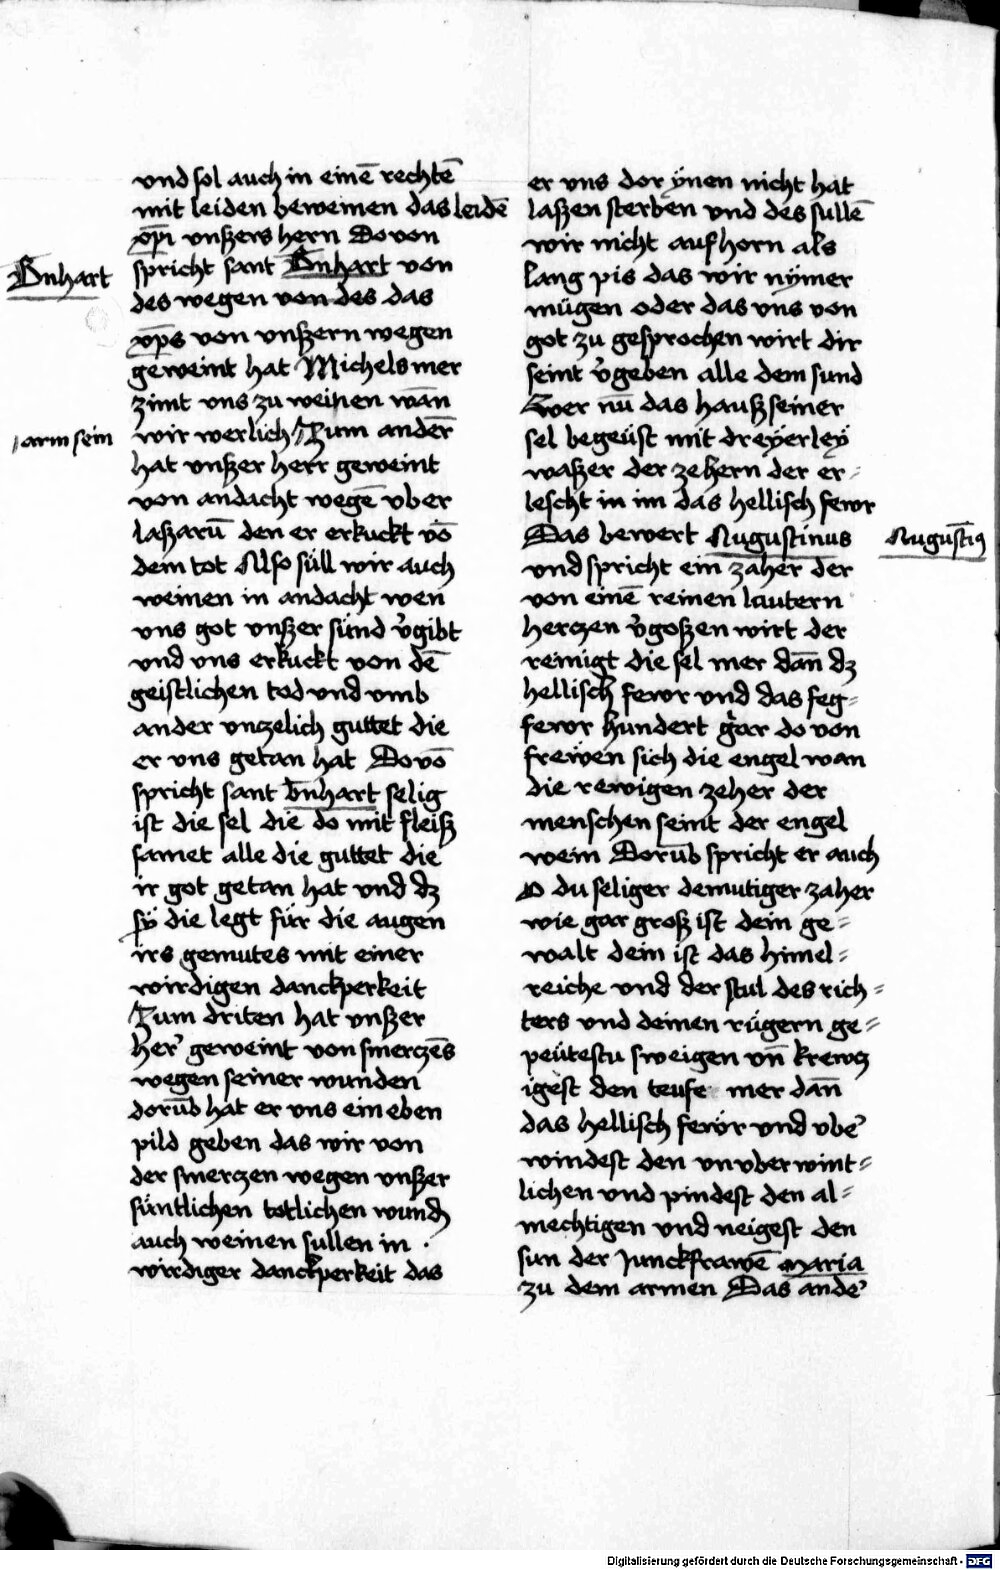 und sol auch in einē rechtē
mit leiden beweinen das leidē
xp̄i unßers hern Dovon
B̄nhart
spricht sant B̄nhart von
des wegen von des das
xp̄s von unßern wegen
geweint hat Michels mer
zimt uns zu weinen wān
wir werlich / Zum andēr
/ arm sein
hat unßer herr geweint
von andacht wegē uber
laßarū den er erkuckt vō
dem tot Also süll wir auch
weinen in andacht wen
uns got unßer sünd v̓gibt
und uns erkuckt von dē
geistlichen tod und umb
ander unzelich guttet die
er uns getan hat Dovō
spricht sant b̄nhart selig
ist die sel die do mit fleiß
samet alle die guttet die
ir got getan hat und dz
sÿ die legt für die augen
irs gemutes mit einer
wirdigen danckperkeit
Zum driten hat unßer
her̓ geweint von smerczēs
wegen seiner wunden
dorūb hat er uns ein eben
pild geben das wir von
der smerczen wegen unßer
süntlichen totlichen wundn
auch weinen sullen in ·
wirdiger danckperkeit das
er uns dor ÿnen nicht hat
laßen sterben und des sullē
wir nicht aufhorn als
lang pis das wir nÿmer
mügen oder das uns von
got zu gesprochen wirt dir
seint v̓geben alle dem sund
Swer nū das hauß seiner
sel begeüst mit dreÿerleÿ
waßer der zehern der er=
lescht in im das hellisch fewr
Das bewert Augustinus
Augustīus
und spricht ein zaher der
von einē reinen lautern
herczen v̓goßen wirt der
reinigt die sel mer dān dz
hellisch fewr und das feg=
fewr hundert gar do von
freẅen sich die engel wan
die rewigen zeher der
menschen seint der engel
wein Dorūb spricht er auch
O du seliger demutiger zaher
wie gar groß ist dein ge=
walt dein ist das himel=
reiche und der stul des rich=
ters und deinen rügern ge=
peütestu sweigen un̄ krewcz
igest den teufe mer dān
das hellisch fewr und ube̓
windest den unuberwint=
lichen und pindest den al=
mechtigen und neigest den
sun der Junckfrawē maria
zu dem armen Das ande̓
Digitalisierung gefördert durch die Deutsche Forschungsgemeinschaft - DFG